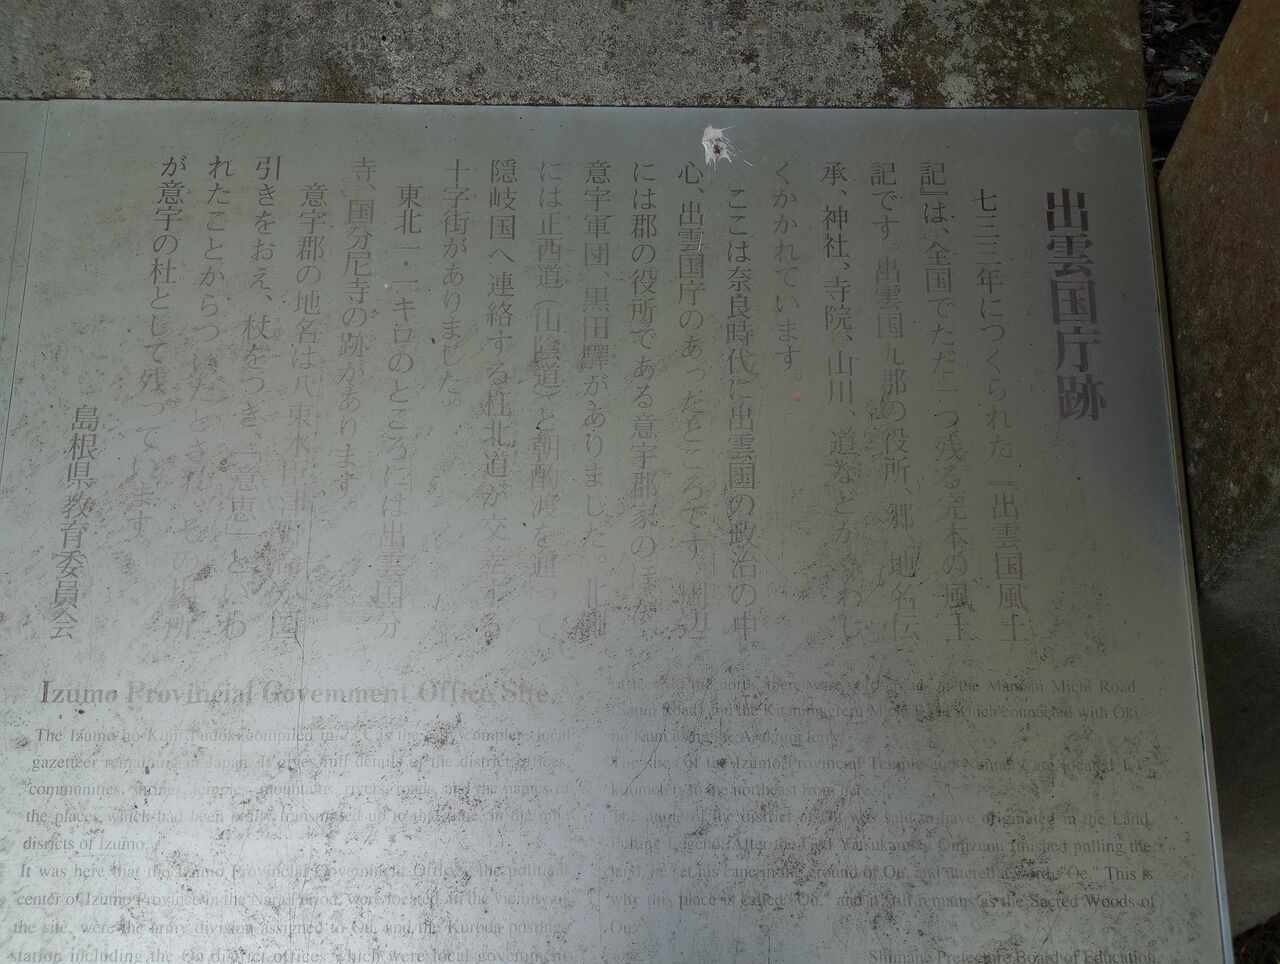 出雲国庁跡
七三三年につくられた『出雲国風土
記』は、全国でただ一つ残る完本の風土
記です。出雲国九郡の役所、郷、地名伝
承、神社、寺院、山川、道などがくわし
くかかれています。
ここは奈良時代に出雲国の政治の中
心、出雲国庁のあったところです。周辺
には郡の役所である意宇郡家のほか、
意宇軍団、黒田驛がありました。北側
には正西道(山陰道)と朝酌渡を通って
隠岐国へ連絡する枉北道が交差する
十字街がありました。
東北一・一キロのところには出雲国分
寺、国分尼寺の跡があります。
意宇郡の地名は八束水臣津野命が国
引きをおえ、杖をつき、「意恵」といわ
れたことからついたとされ、その場所
が意宇の杜として残っています。
島根県教育委員会
Izumo Provincial Government Office Site
The Izumo no Kuni Fudoki compiled in 733 is the complete local
gazetteer remaining in Japan. It gives full details of the district offices,
communities, shrines, temples, mountains, rivers, roads, and the names of
the places which had been orally transmitted up to that time, in the nine
districts of Izumo.
It was here that the Izumo Provincial Government Offices, the political
center of Izumo Province in the Nara Period, were located. In the vicinity of
the site, were the army division assigned to Ou, and the Kuroda posting-
station including the Ou district offices which were local government
offices. To the north, there were crossroads of the Manishi Michi Road
(Sanin Road) and the Kitamichi Road which connected with Oki
no Kuni
The sites of the Izumo Provincial Temple and Nunnery are located 1.1
kilometers to the northeast from here.
The name of the district of Ou was said to have originated in the Land
Pulling Legend. After the God Yatsukamizu Omizunu finished pulling the
land, he set his cane in the ground of Ou, and uttered a word, "Oe." This is
why this place is called "Ou," and it still remains as the Sacred Woods of
Ou.
Shimane Prefecture Board of Education